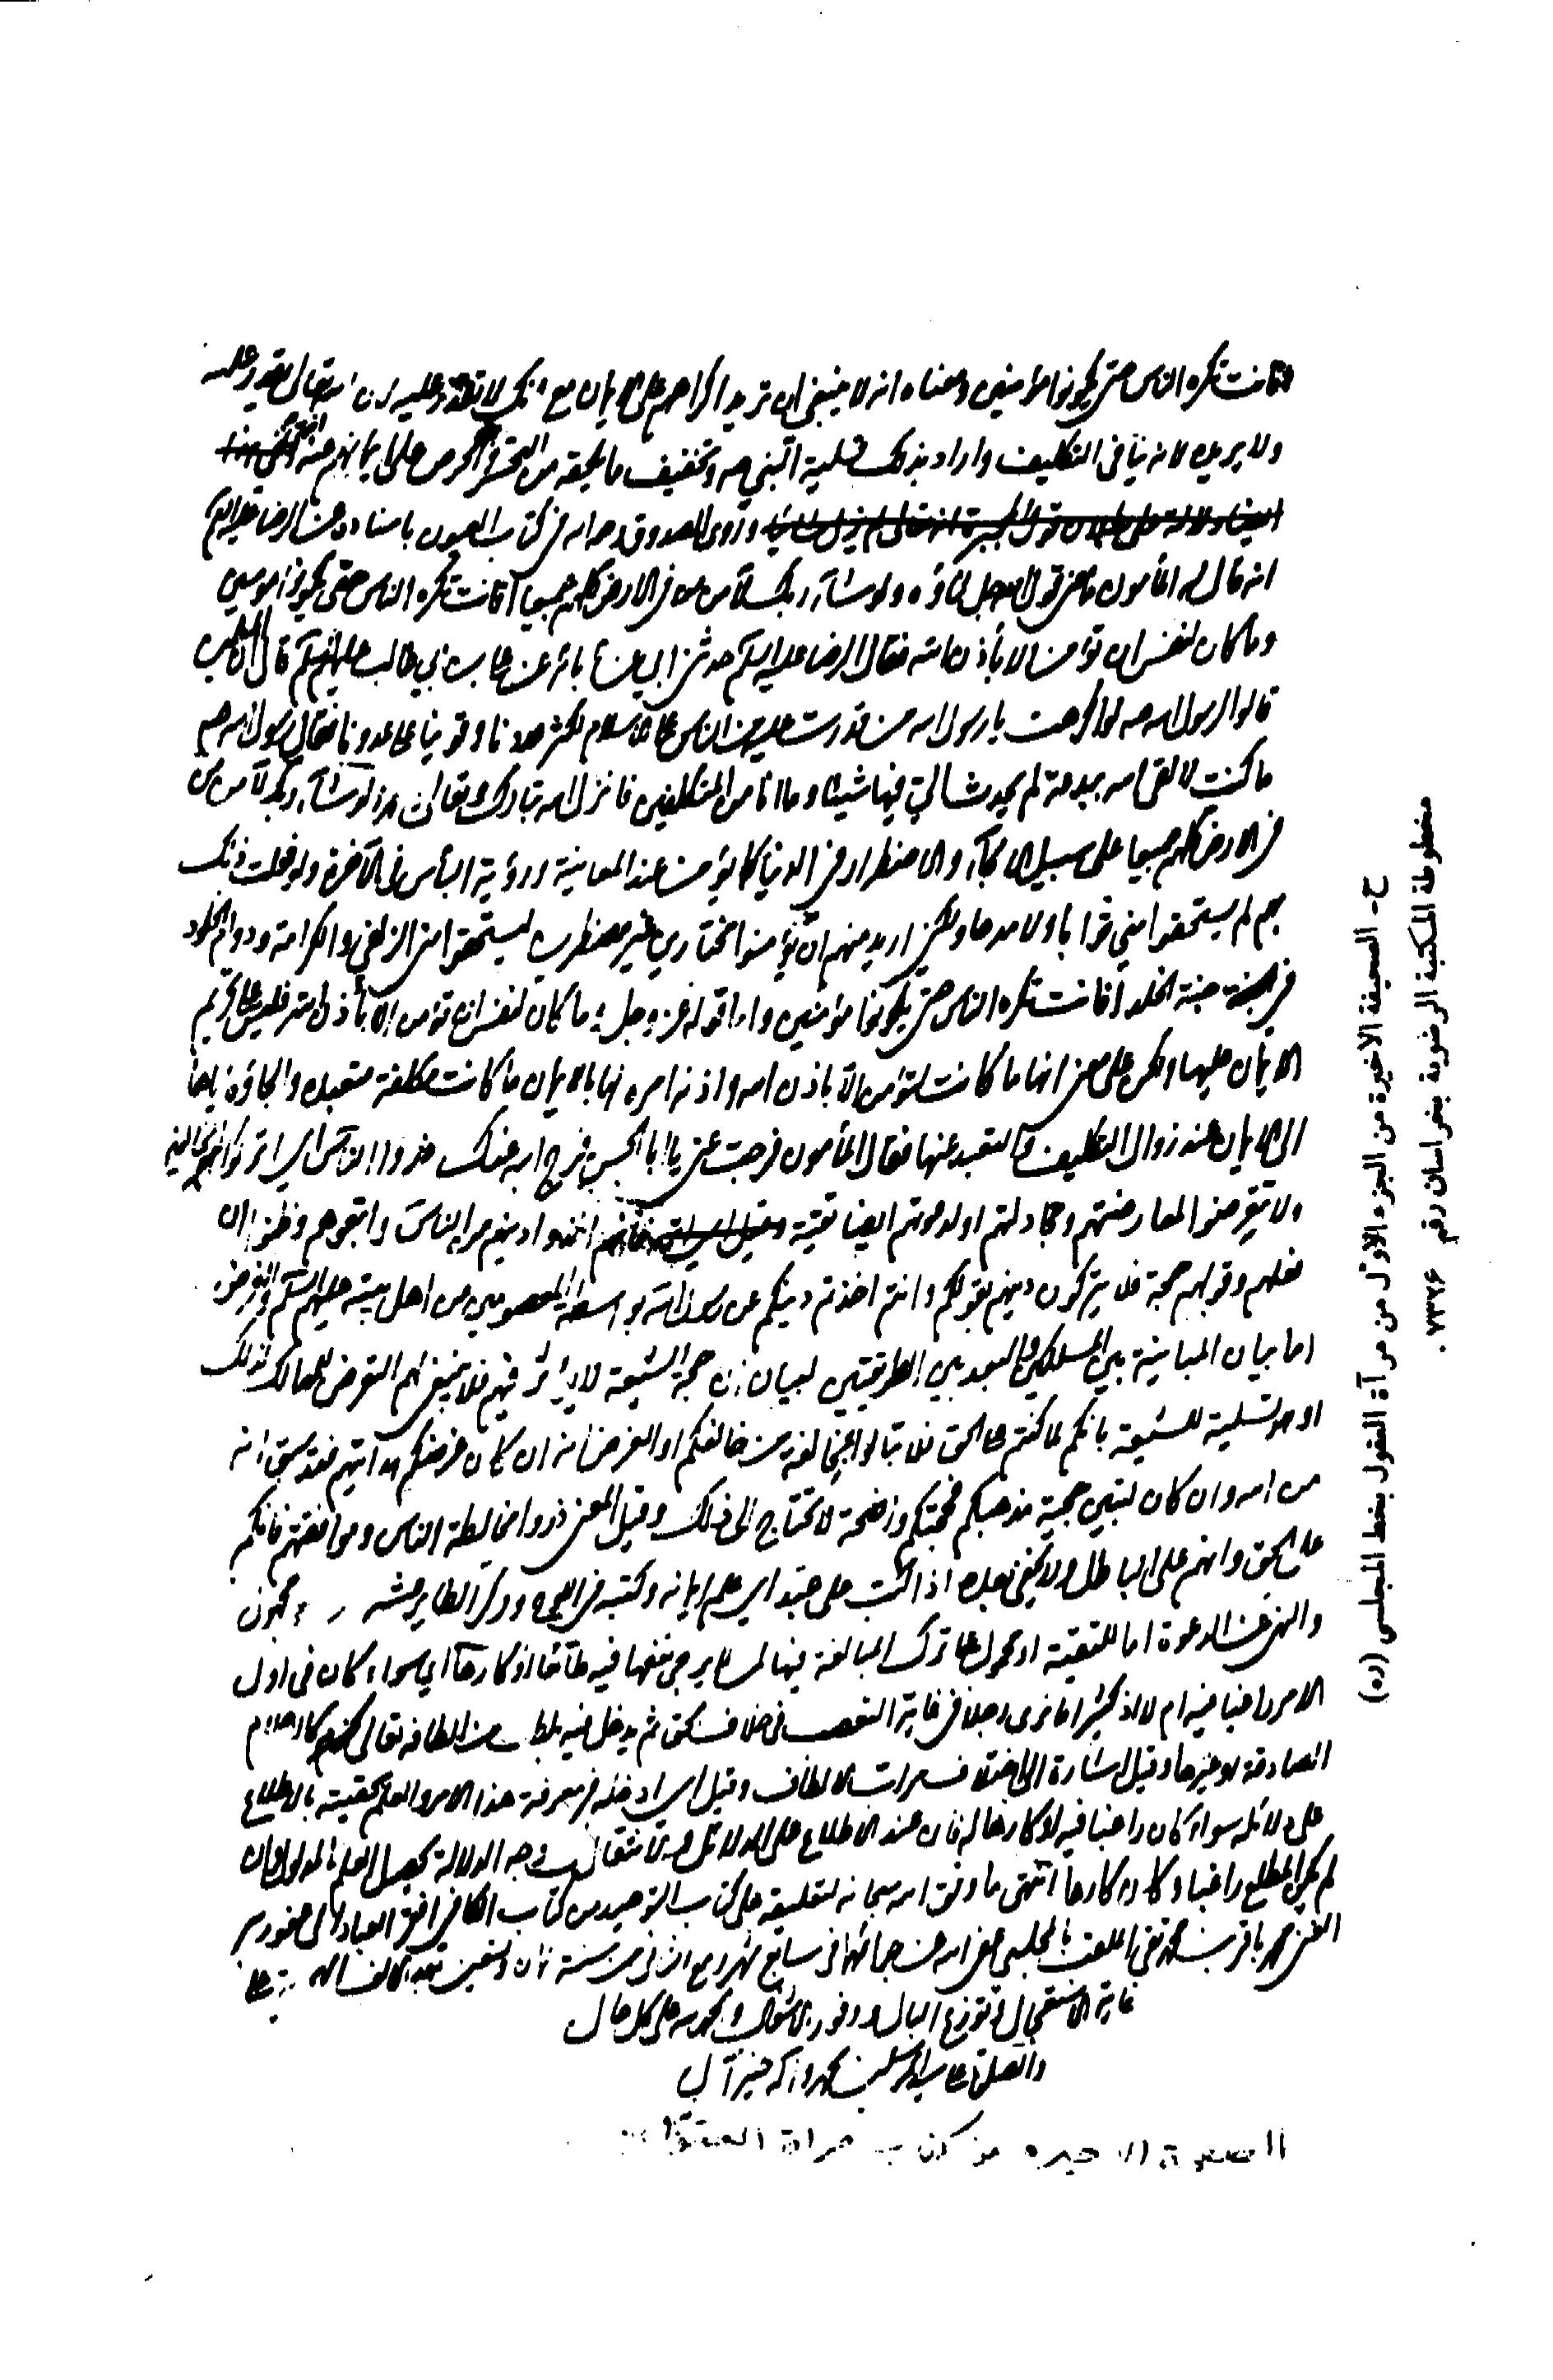 افانت تكره الناس حتى يكونوا مؤمنين ومعناه انه لا ينبغي ان تريد اكراههم على الايمان مع انك لا تقدر عليه لان الله تعالى يقدر عليه
ولا يريده لانه ينافي التكليف واراد بذلك تسلية النبي ص وتخفيف ما يلحقه من التحسر والحرص على ايمانهم عنه انتهى
ايضا دلالة على بطلان قول المجبرة انه تعالى لم يزل وروى الصدوق رحمه الله في كتاب العيون باسناده عن الرضا عليه السلم
انه قال له المأمون ما معنى قول الله جل ثناؤه ولو شآء ربك لآمن من في الارض كلهم جميعا أفانت تكره الناس حتى يكونوا مؤمنين
وما كان لنفس ان تؤمن الا بأذن الله فقال الرضا عليه السلم حدثني ابي عن آبائه عن علي بن ابي طالب عليهم السلم قال ان المسلمين
قالوا لرسول الله ص لو اكرهت يا رسول الله من قدرت عليه من الناس على الاسلام لكثر عددنا وقوينا على عدونا فقال رسول الله ص
ما كنت لالقى الله ببدعة لم يحدث الي فيها شيئا وما انا من المتكلفين فانزل الله تبارك وتعالى ولو شآء ربك لآمن من
في الارض كلهم جميعا على سبيل الالجآء والاضطرار في الدنيا كما يؤمن عند المعاينة ورؤية البأس في الآخرة ولو فعلت ذلك
بهم لم يستحقوا مني ثوابا ولا مدحا ولكني اريد منهم ان يؤمنوا مختارين غير مضطرين ليستحقوا مني الزلفى والكرامة ودوام الخلود
في الجنة جنة الخلد أفانت تكره الناس حتى يكونوا مؤمنين واما قوله عز وجل وما كان لنفس ان تؤمن الا بأذن الله فليس على تحريم
الايمان عليها ولكن على معنى انها ما كانت لتؤمن الا باذن الله واذنه امره لها بالايمان ما كانت مكلفة متعبدة والجاؤه اياها
الى الايمان عند زوال التكليف والتعبد عنها فقال المأمون فرجت عني يا ابا الحسن فرج الله عنك ذروا الناس اي اتركوا المخالفين
ولا تتعرضوا لمعارضتهم ومجادلتهم او لدعوتهم ايضا تقية فانهم اخذوا دينهم من الناس واتبعوهم وظنوا ان
فعلهم وقولهم حجة فلا يتركون دينهم بقولكم وانتم اخذتم دينكم عن رسول الله بواسطة المعصومين من اهل بيته عليهم السلم والغرض
اما بيان المباينة بين المسلكين والبعد بين الطريقتين لبيان ان حجة الشيعة لا يؤثر فيهم فلا ينبغي لهم التعرض للمهالك لذلك
او هو تسلية للشيعة بانكم لما كنتم على الحق فلا تبالوا بمخالفة من خالفكم او الغرض انه ان كان غرضكم هدايتهم فقد سبق انه
من الله وان كان لتبيين حجية مذهبكم فحجتكم واضحة لا تحتاج الى ذلك وقيل المعنى ذروا مخالطة الناس وموافقتهم فانكم
على الحق وانهم على الباطل ولا يخفى بعده اذا كتب على عبد اي علم ايمانه وكتبه في اللوح ووكر الطاير عشه
والنهي عن الدعوة اما للتقية او محمول على ترك المبالغة فيها لمن لا يرجى نفعها فيه طائعا او كارها اي سواء كان في اول
الامر راغبا فيه ام لا اذ كثيرا ما نرى رجلا في غاية التعصب في خلاف الحق ثم يدخل فيه بلطف من الطافه تعالى كالاحلام
الصادقة او غيرها وقيل اشارة الى اختلاف مراتب الالطاف وقيل اي ادخله في معرفة هذا الامر والعلم بحقيته بالاطلاع
على دلائله سواء كان راغبا فيه او كارها له فان عند الاطلاع على الدلائل والانتقال الى وجه الدلالة يحصل العلم بالمدلول وان
لم يكن المطلع راغبا وكان كارها انتهى ما وفق الله سبحانه لتعليقه على كتاب التوحيد من كتاب الكافي افقر العباد الى عفو ربه
الغني محمد باقر بن محمد تقي الملقب بالمجلسي عفى الله عن جرائمهما في سابع شهر ربيع الثاني من سنة ثمان وتسعين بعد الالف على
غاية الاستعجال وتوزع البال ووفور الاشغال والحمد لله على كل حال
والصلوة على سيد المرسلين محمد وآله خير آل
الصفحة الاخيرة من كتاب مرآة العقول
ح - الصحيفة الاخيرة من الجزء الاول من مرآة العقول بخط المجلسي (ره)
مخطوطة المكتبة الرضوية بخراسان رقم ٧٣٢۶ .